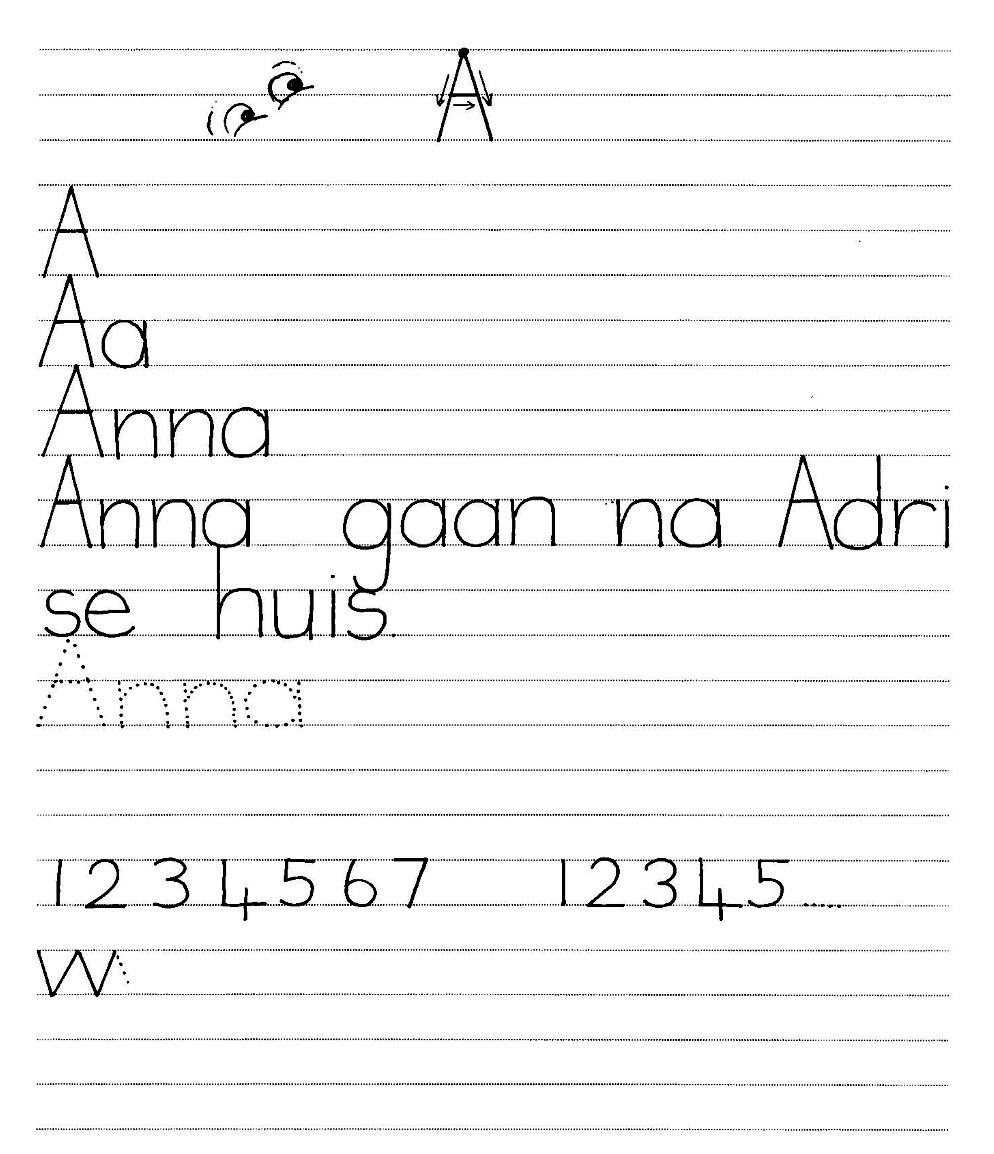 A
A
Aa
Anna
Anna gaan na Adri
se huis.
Anna
1 2 3 4 5 6 7 1 2 3 4 5 .....
w